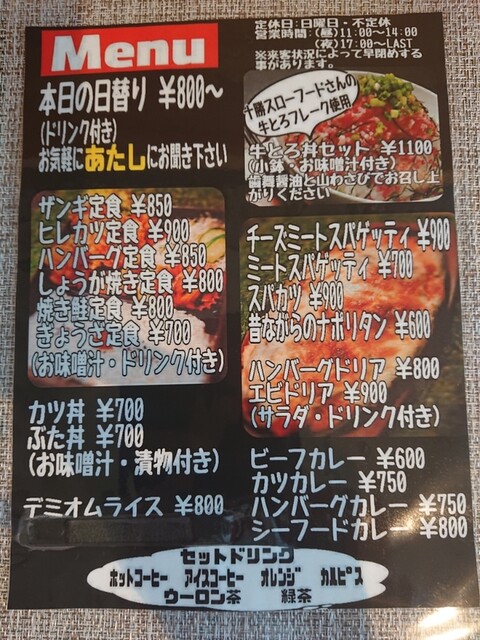 Menu
定休日:日曜日・不定休
営業時間:(昼)11:00~14:00
(夜)17:00~LAST
※来客状況によって早閉めする
事があります。
本日の日替り ¥800~
(ドリンク付き)
お気軽にあたしにお聞き下さい
十勝スローフードさんの
牛とろフレーク使用
牛とろ丼セット ¥1100
(小鉢・お味噌汁付き)
醤油と山わさびでお召し上
がりください
ザンギ定食 ¥850
ヒレカツ定食 ¥900
ハンバーグ定食 ¥850
しょうが焼き定食 ¥800
焼き鮭定食 ¥800
ぎょうざ定食 ¥700
(お味噌汁・ドリンク付き)
チーズミートスパゲッティ ¥900
ミートスパゲッティ ¥700
スパカツ ¥900
昔ながらのナポリタン ¥600
ハンバーグドリア ¥800
エビドリア ¥900
(サラダ・ドリンク付き)
カツ丼 ¥700
ぶた丼 ¥700
(お味噌汁・漬物付き)
デミオムライス ¥800
ビーフカレー ¥600
カツカレー ¥750
ハンバーグカレー ¥750
シーフードカレー ¥800
セットドリンク
ホットコーヒー アイスコーヒー オレンジ カルピス
ウーロン茶 緑茶